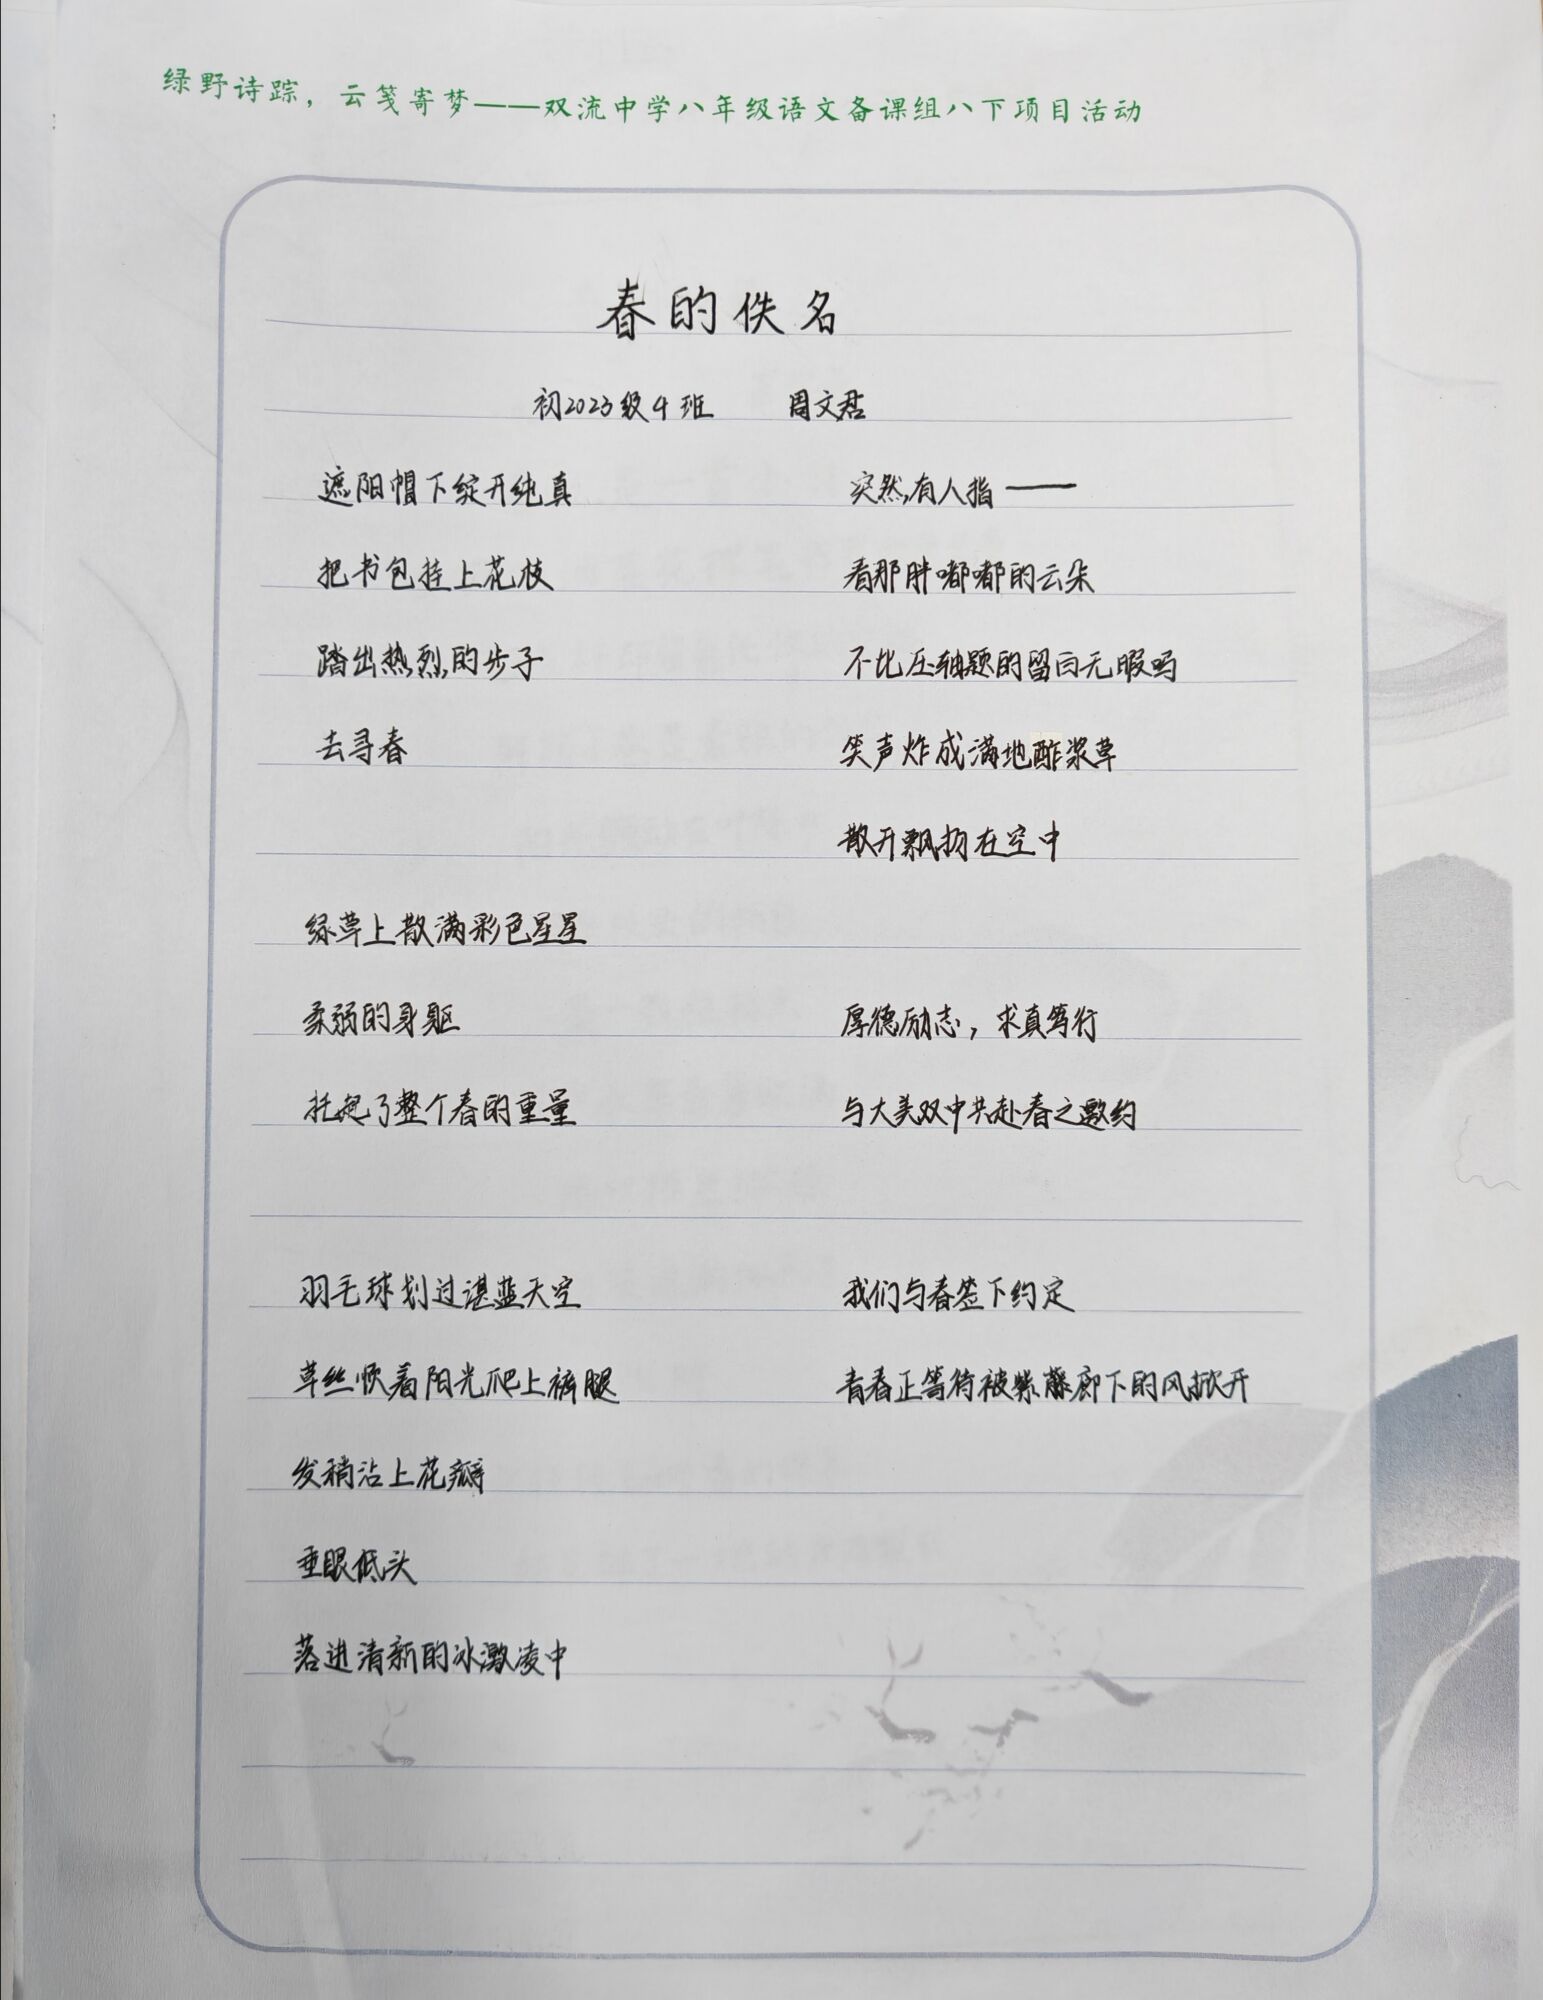 绿野诗踪，云笺寄梦——双流中学八年级语文备课组八下项目活动
春的佚名
初2023级4班 周文君
遮阳帽下绽开纯真
把书包挂上花枝
踏出热烈的步子
去寻春
绿草上散满彩色星星
柔弱的身躯
托起了整个春的重量
羽毛球划过湛蓝天空
草丝惯着阳光爬上裤腿
发稍沾上花瓣
垂眼低头
落进清新的冰激凌中
突然,有人指——
看那胖嘟嘟的云朵
不比压轴题的留白无暇吗
笑声炸成满地酢浆草
散开飘扬在空中
厚德励志，求真笃行
与大美双中共赴春之邀约
我们与春签下约定
青春正等待被紫藤廊下的风掀开